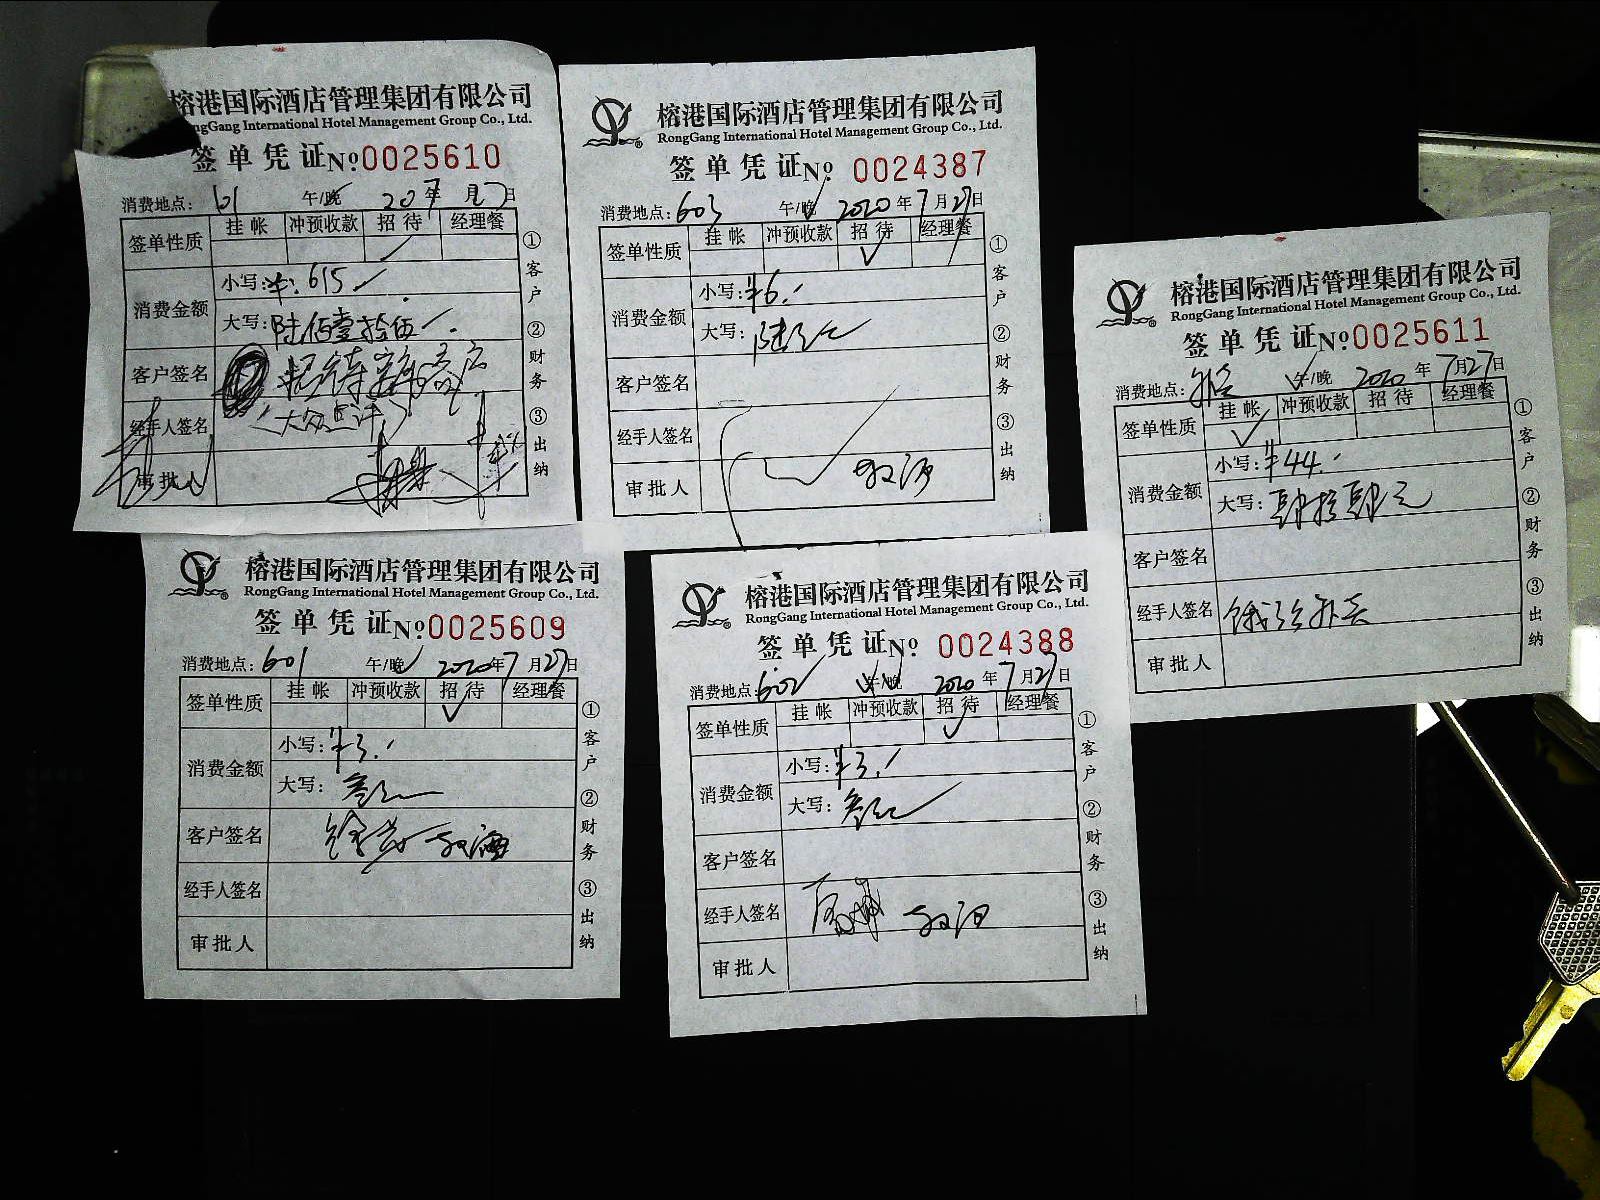 榕港国际酒店管理集团有限公司
ngGang International Hotel Management Group Co., Ltd.
签单凭证 № 0025610
消费地点: 601 午/晚 20 年 7 月 27 日
签单性质 挂帐 冲预收款 招待 经理餐
消费金额 小写: ¥: 615
大写: 陆佰壹拾伍
客户签名 招待
(大众点评)
经手人签名
审批人
①客户 ②财务 ③出纳
榕港国际酒店管理集团有限公司
RongGang International Hotel Management Group Co., Ltd.
签单凭证 № 0024387
消费地点: 603 午/晚 2020 年 7 月 27 日
签单性质 挂帐 冲预收款 招待 经理餐
消费金额 小写: ¥6.
大写: 陆元
客户签名
经手人签名
审批人
①客户 ②财务 ③出纳
榕港国际酒店管理集团有限公司
RongGang International Hotel Management Group Co., Ltd.
签单凭证 № 0025611
消费地点: 午/晚 2020 年 7 月 27 日
签单性质 挂帐 冲预收款 招待 经理餐
消费金额 小写: ¥44.
大写: 肆拾肆元
客户签名
经手人签名 饿了么外卖
审批人
①客户 ②财务 ③出纳
榕港国际酒店管理集团有限公司
RongGang International Hotel Management Group Co., Ltd.
签单凭证 № 0025609
消费地点: 601 午/晚 2020 年 7 月 27 日
签单性质 挂帐 冲预收款 招待 经理餐
消费金额 小写: ¥3.
大写: 叁元
客户签名
经手人签名
审批人
①客户 ②财务 ③出纳
榕港国际酒店管理集团有限公司
RongGang International Hotel Management Group Co., Ltd.
签单凭证 № 0024388
消费地点: 602 午/晚 2020 年 7 月 27 日
签单性质 挂帐 冲预收款 招待 经理餐
消费金额 小写: ¥3.
大写: 叁元
客户签名
经手人签名
审批人
①客户 ②财务 ③出纳